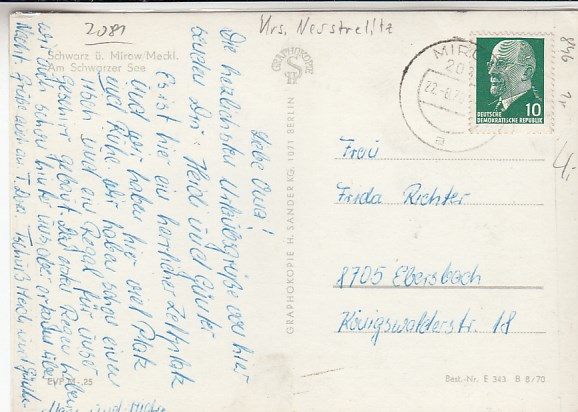 2081
Krs. Neustrelitz
Schwarz ü. Mirow Meckl.
Am Schwarzer See
Liebe Oma!
Die herzlichsten Urlaubsgrüße von hier
senden Dir Heidi und Günter
Es ist hier ein herrlicher Zeltplatz
und wir haben hier viel Platz
und Ruhe. Wir haben schon einen
und ein Regal für unser
Geschirr gebaut. Den ersten Regen haben
wir auch schon hinter uns, aber er
Tschüß Heidi und Günter
EVP M -,25
GRAPHOKOPIE
GRAPHOKOPIE H. SANDER KG, 1071 BERLIN
MIRO
20
22.-8.7
a
10
DEUTSCHE
DEMOKRATISCHE REPUBLIK
4,-
Frau
Frida Richter
8705 Ebersbach
Königswalderstr. 18
Best.-Nr. E 343 B 8/70